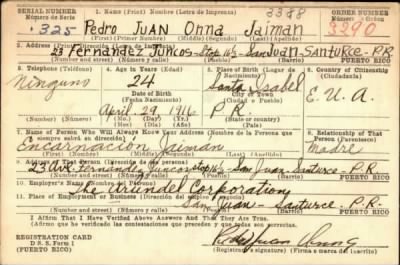 SERIAL NUMBER 1. NAME (Print) Nombre (Letra de Imprenta) 3388 ORDER NUMBER
Número de Serie Número de Orden
325 Pedro JUAN Onna Jaiman 3290
(First) (Primer Nombre) (Middle) (Segundo) (Last) (Apellido)
23 Fernández Juncos Stop 16½ San Juan, Santurce-P.R.
(Number and street) (Número y calle) PUERTO RICO
3. Telephone (Teléfono) 4. Age in Years (Edad) 5. Place of Birth (Lugar de Nacimiento) 6. Country of Citizenship (Ciudadanía)
Ninguno 24 Santa Isabel E.U.A.
Date of Birth City or Town
(Fecha Nacimiento) (Ciudad o Pueblo)
April 29, 1916 P.R.
State or Country
7. Name of Person Who Will Always Know Your Address (Nombre de la Persona que siempre sabrá su dirección) 8. Relationship of That Person (Parentesco)
Encarnación Jaiman Madre
(First) (Primer Nombre) (Middle) (Segundo) (Last) (Apellido)
9. Address of That Person (Dirección de esta Persona)
23 Ave. Fernández Juncos stop 16½ San Juan Santurce P.R.
(Number and street) (Número y calle) PUERTO RICO
10. Employer's Name
The Arundel Corporation
11. Place of Employment or Business (Dirección del empleo o negocio)
San Juan-Santurce-P.R.
(Number and street) (Número y calle) PUERTO RICO
I Affirm That I Have Verified Above Answers And That They Are True.
Afirmo que he verificado las contestaciones que preceden y que todas son verdad.
REGISTRATION CARD
D. S. S. Form 1
(PUERTO RICO)
Pedro Juan Onna J.
(Registrant's signature) (Firma o marca del registrado)